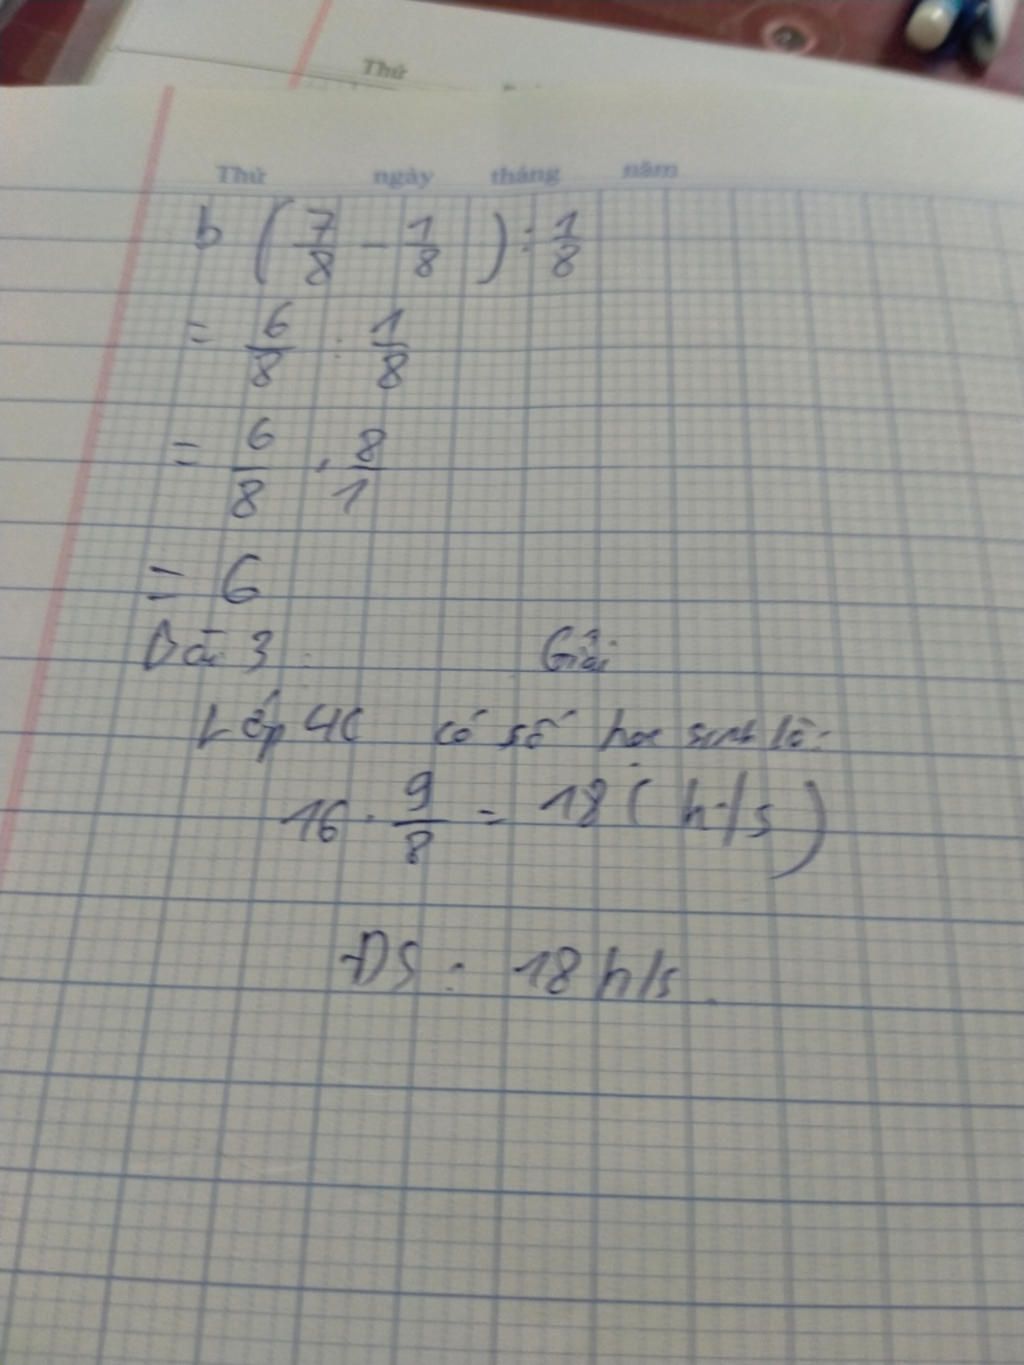 Thứ
Thứ ngày tháng năm
b (7/8 - 1/8) : 1/8
= 6/8 : 1/8
= 6/8 . 8/1
= 6
Bài 3: Giải
Lớp 4C có số học sinh là:
16 . 9/8 = 18 (h/s)
ĐS: 18 h/s.